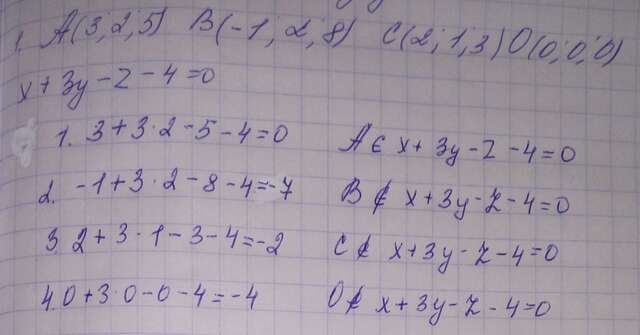 1. A(3,2,5) B(-1,2,8) C(2;1,3) O(0;0;0)
x+3y-z-4=0
1. 3+3·2-5-4=0 A∈ x+3y-z-4=0
2. -1+3·2-8-4=-7 B∉ x+3y-z-4=0
3. 2+3·1-3-4=-2 C∉ x+3y-z-4=0
4. 0+3·0-0-4=-4 O∉ x+3y-z-4=0